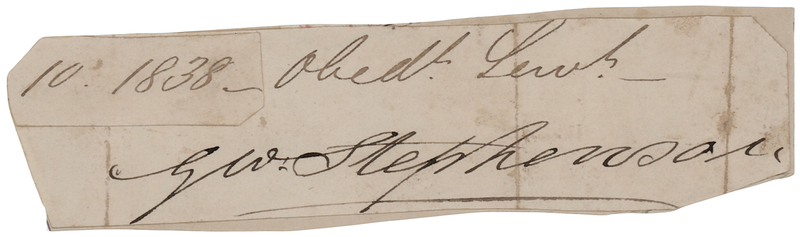 10. 1838 – Obedt. Servt. –
Gw: Stephenson